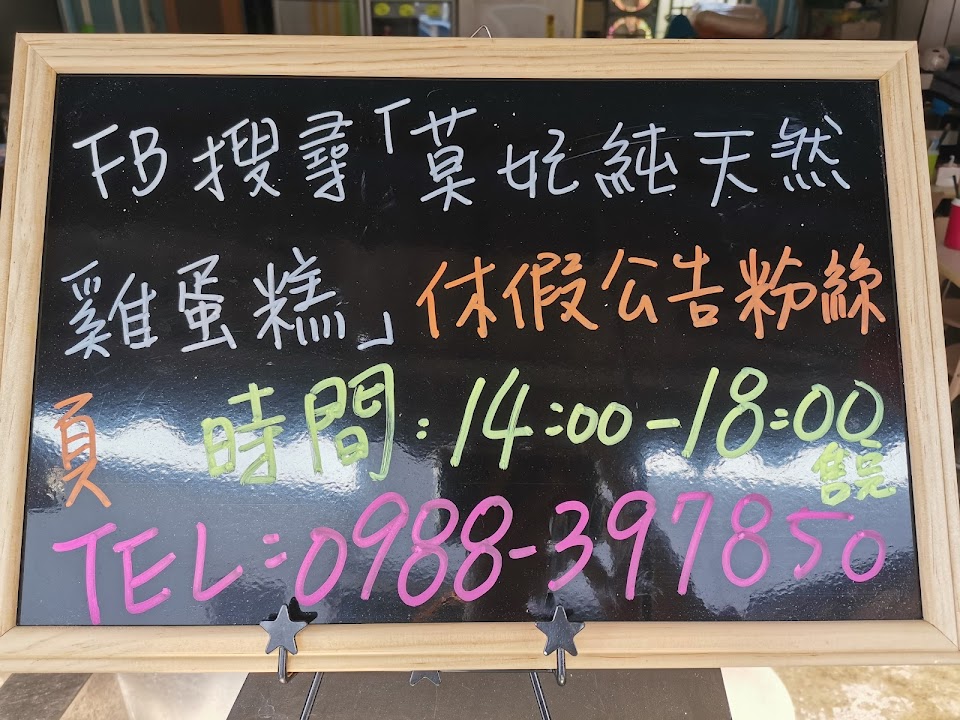 FB搜尋「莫妃純天然
雞蛋糕」休假公告粉絲
頁 時間:14:00-18:00
售完
TEL:0988-397850